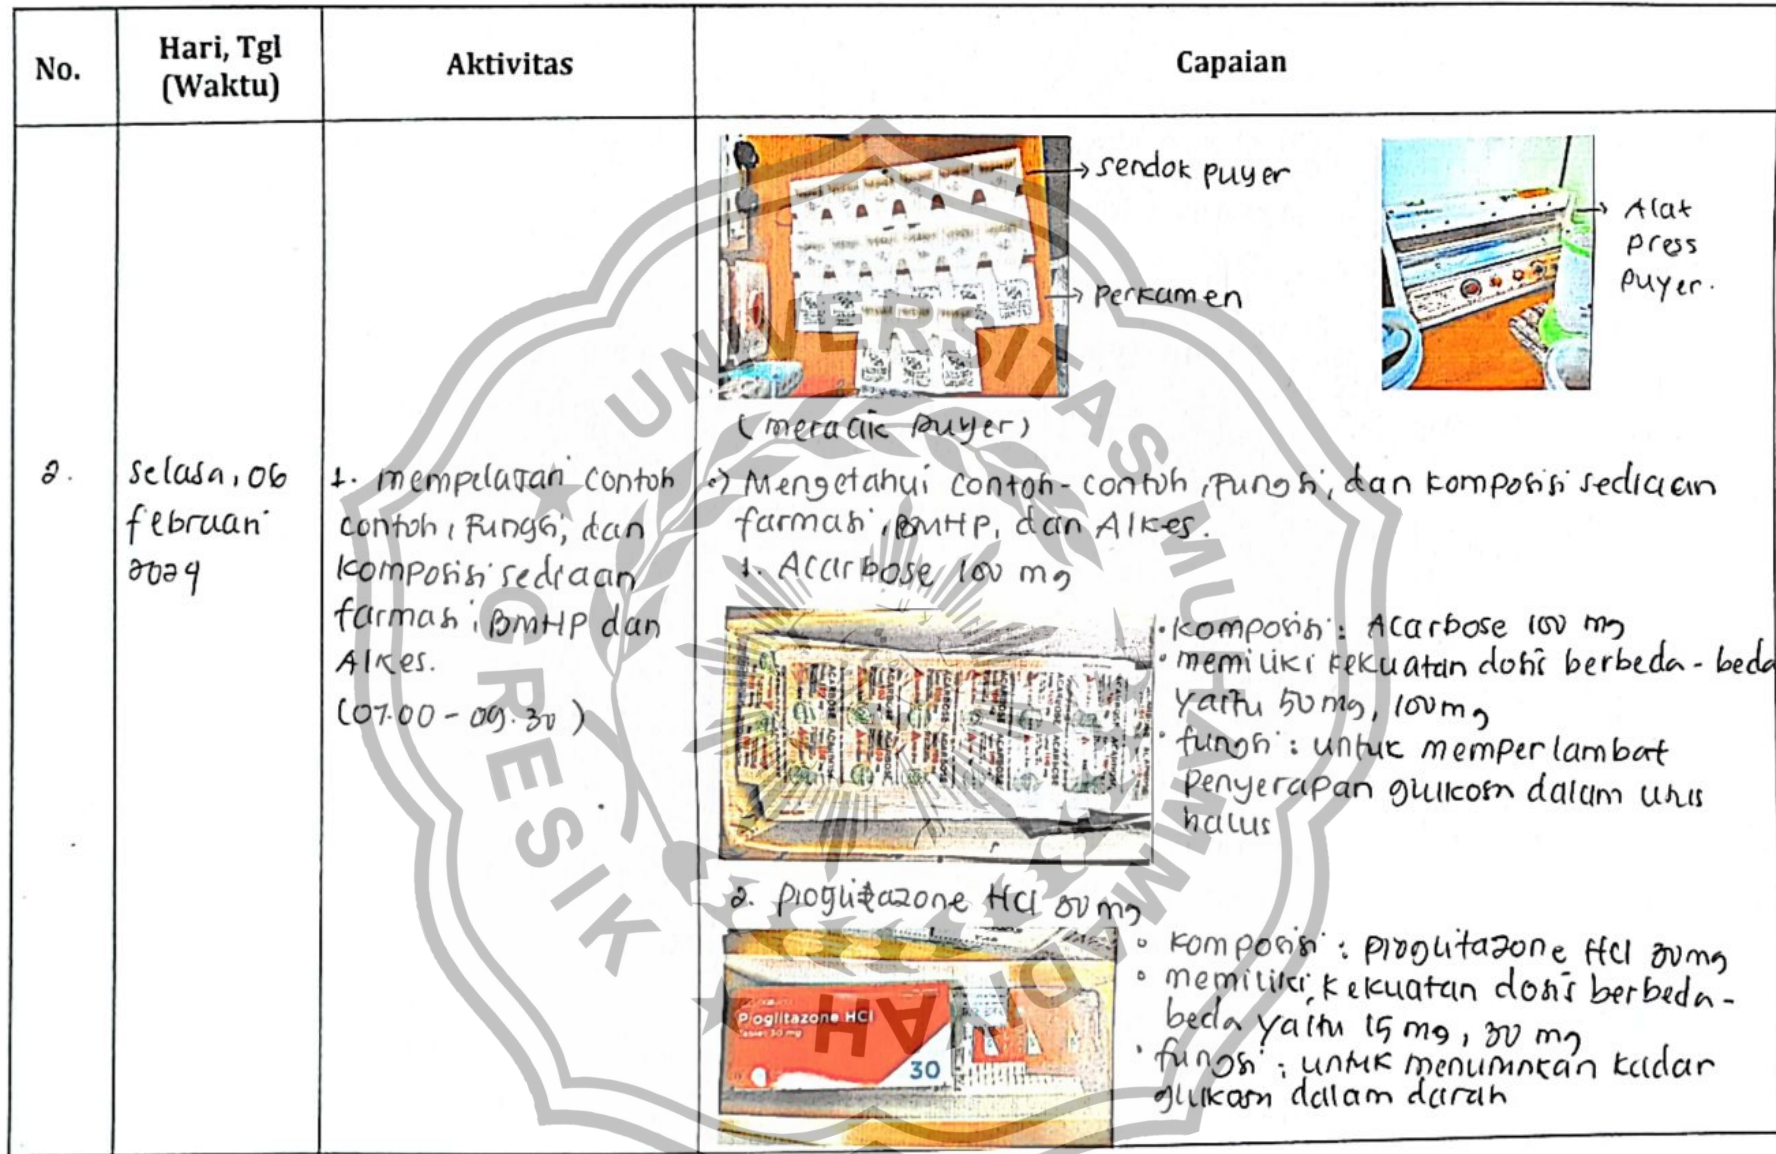 No.
Hari, Tgl
(Waktu)
Aktivitas
Capaian
→ sendok puyer
→ Perkamen
→ Alat
press
puyer.
(meracik puyer)
2.
selasa, 06
februari
2024
1. mempelajari contoh
contoh, Fungsi, dan
komposisi sediaan
farmasi, BMHP dan
Alkes.
(07.00 - 09.30)
Mengetahui contoh-contoh, Fungsi, dan komposisi sediaan
farmasi, BMHP, dan Alkes.
1. Acarbose 100 mg
ACARBOSE
• komposisi : Acarbose 100 mg
• memiliki kekuatan dosis berbeda-beda
yaitu 50 mg, 100 mg
• fungsi : untuk memperlambat
penyerapan glukosa dalam usus
halus
2. Pioglitazone HCl 30 mg
Pioglitazone HCl
Tablet 30 mg
30
• komposisi : pioglitazone HCl 30 mg
• memiliki kekuatan dosis berbeda-
beda yaitu 15 mg, 30 mg
• fungsi : untuk menurunkan kadar
glukosa dalam darah
UNIVERSITAS MUHAMMADIYAH
GRESIK